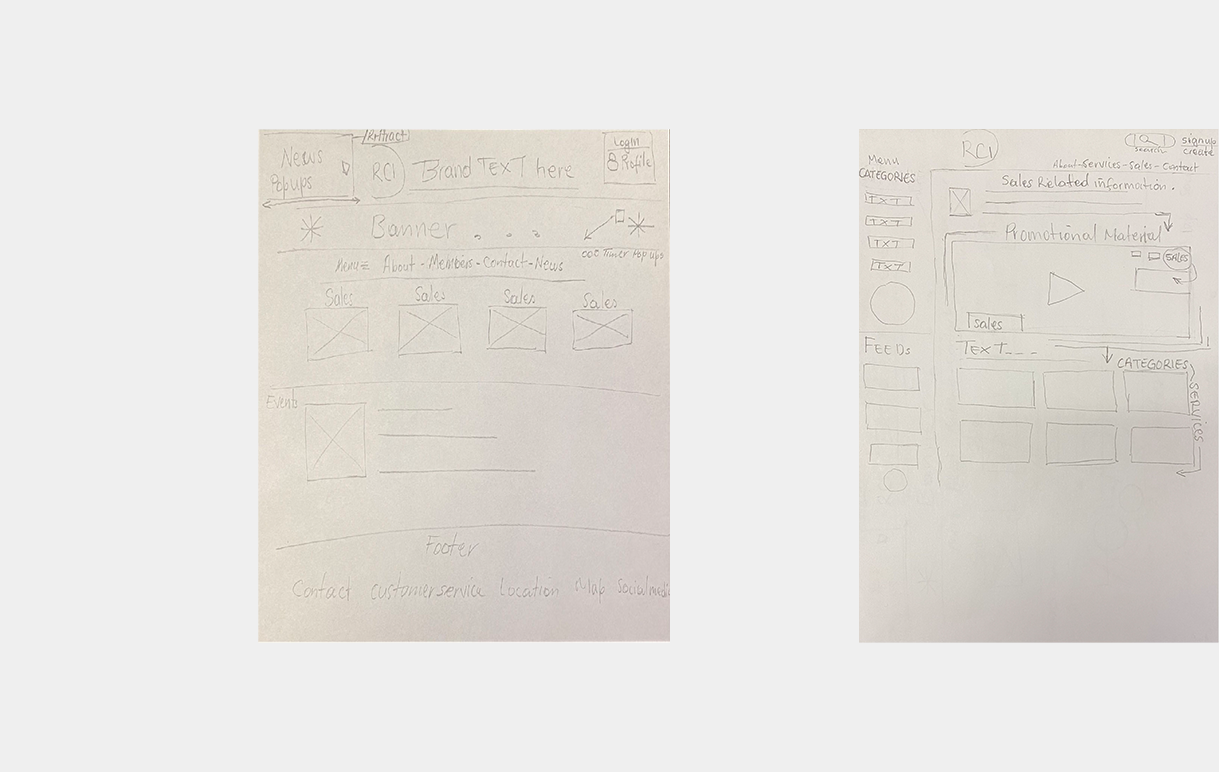 News
Popups
RCI
Brand TEXT here
Login
Profile
Banner . . .
Timer Pop ups
Menu
About - Members - Contact - News
Sales
Sales
Sales
Sales
Events
Footer
Contact customerservice Location Map Socialmedi
RCI
search
signup
create
About - Services - Sales - Contact
Menu
CATEGORIES
TXT
TXT
TXT
TXT
Sales Related information.
Promotional Material
SALES
sales
FEEDs
TEXT---
CATEGORIES
SERVICES